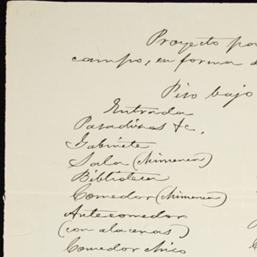 Proyecto pa
campo, en forma d
Piso bajo
Entrada
Pasadizos &c.
Gabinete
Sala (Chimenea)
Biblioteca
Comedor (Chimenea)
Antecomedor
(con alacenas)
Comedor chico